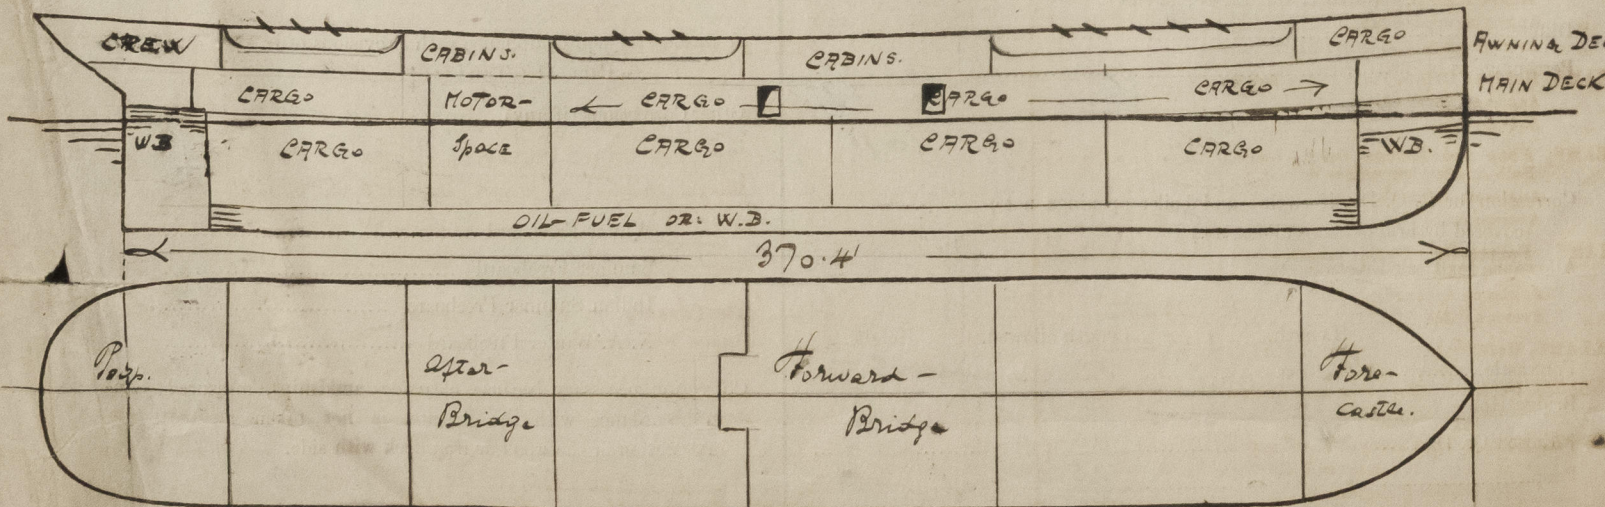 CREW
CABINS.
CABINS.
CARGO
AWNING DE
CARGO
MOTOR-
CARGO
CARGO
CARGO
MAIN DECK
WB
CARGO
Space
CARGO
CARGO
CARGO
WB.
OIL-FUEL OR: W.B.
370.4'
Poop.
After-
Bridge
Forward-
Bridge
Fore-
castle.